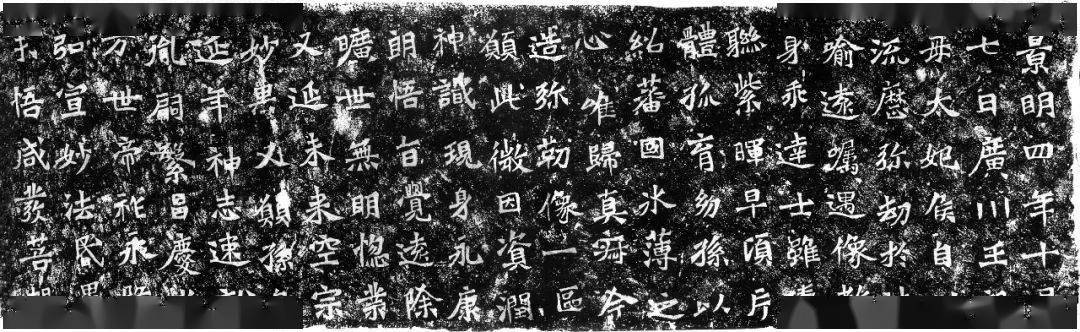 景明四年十
七日廣川王
毋太妃侯自
流歷弥劫於
喻遠矚遇像
身乖達士雖
聯紫暉早頃片
體孤育幼孫以
紹蕃國冰薄之
心唯歸真寂今
造弥勒像一區
願此微因資潤
神識現身永康
朗悟旨覺遠除
曠世無明惚業
又延未來空宗
妙果又願孫
延年神志速
胤嗣繁昌慶
万世帝祚永
弘宣妙法昏
悟咸發菩